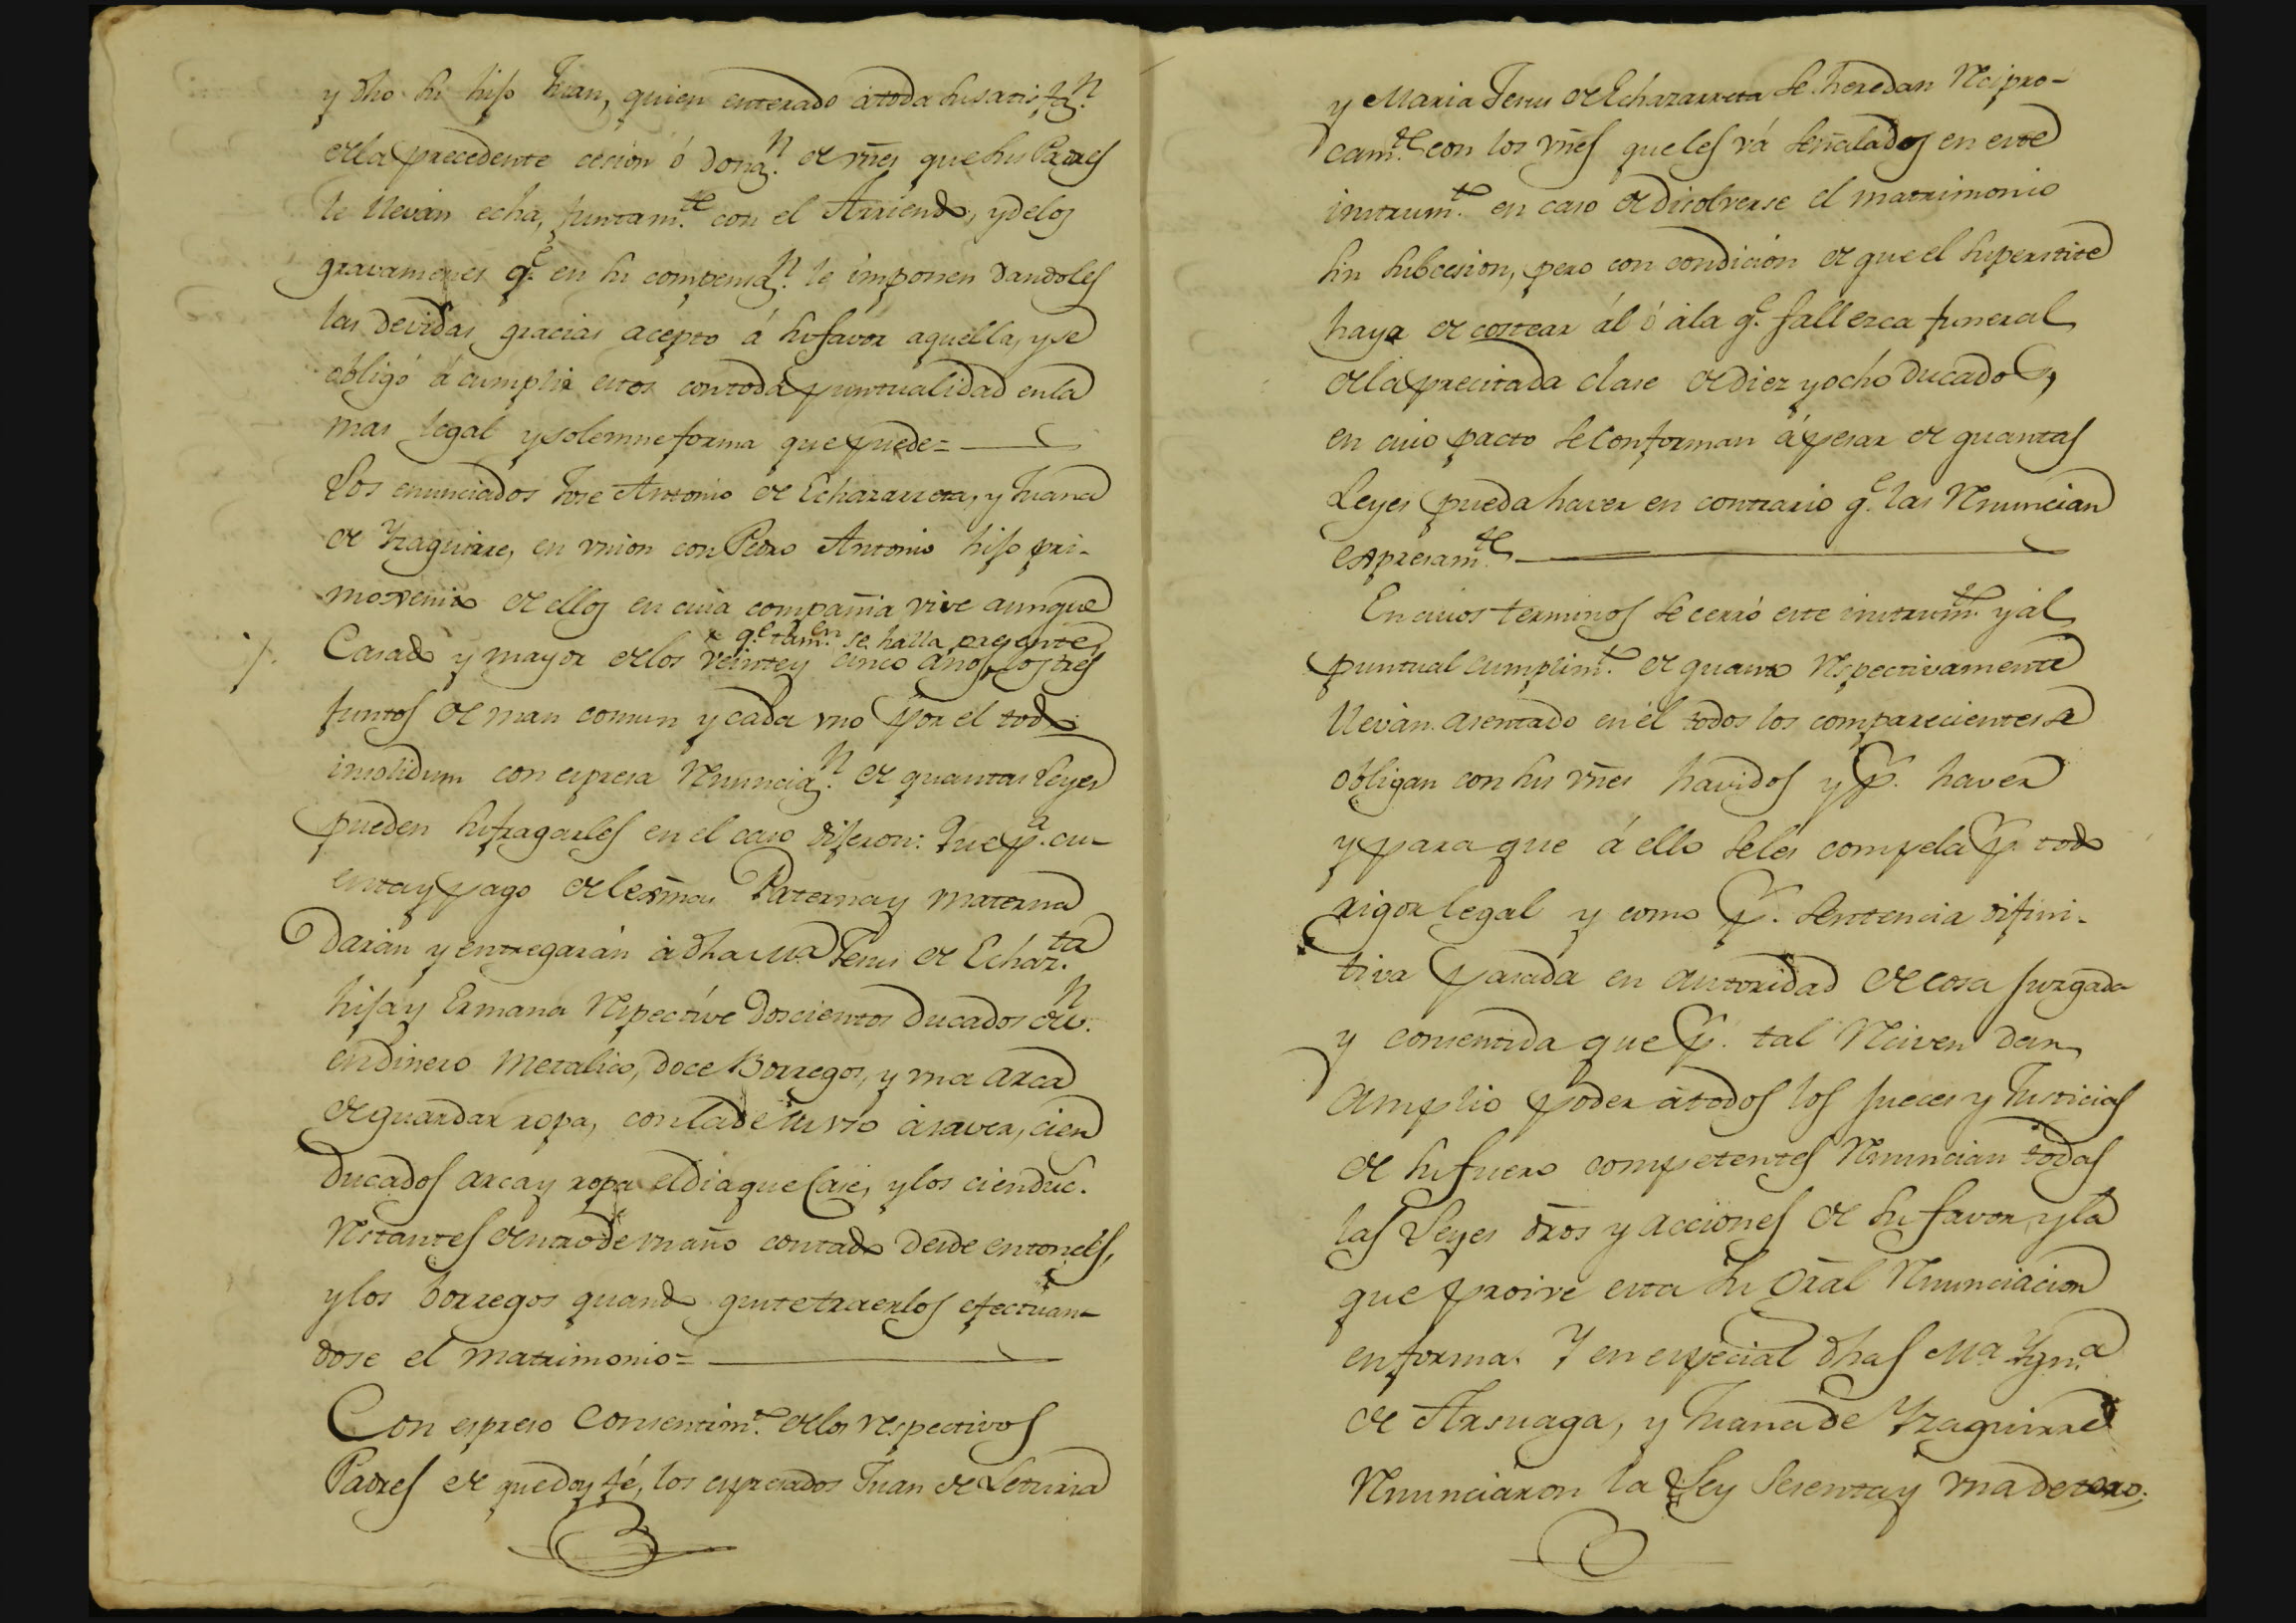 y dho su hijo Juan, quien enterado á toda su satisfaz.n
de la precedente cesion ó donaz.n de vñes que sus Padres
le llevan echa, juntam.te con el Arriendo, y de los
gravamenes q.e en su compensaz.n le imponen dandoles
las devidas gracias acepto á su favor aquella, y se
obligó á cumplir estos con toda puntualidad en la
mas legal y solemne forma que puede=
Los enunciados Jose Antonio de Echazarreta, y Juana
de Yzaguirre, en vnion con Pedro Antonio hijo pri-
mogenito de ellos en cuia compañia vive aunque
q.e tam.en se halla presente
Casado y mayor de los veinte y cinco años, los tres
juntos de man comun y cada vno por el todo
insolidum con espresa Renunciaz.n de quantas Leyes
pueden sufragarles en el caso dijeron: Que p.a cu-
enta y pago de lexmas Paterna y materna
darán y entregarán á dha M.a Jesus de Echaz.ta
hija y Ermana Respectíve Doscientos Ducados de v.n
en dinero metalico, doce Borregos, y vna arca
de guardar ropa, con la de su vso á saver, cien
Ducados arca y ropa el dia que Case, y los cien duc.
Restantes dentro de vn año contado desde entonces,
y los borregos quando guste traerlos efectuan-
dose el matrimonio=
Con espreso Consentim.to de los respectivos
Padres de que doy fé, los expresados Juan de Leturia
y Maria Jesus de Echazarreta se heredan Recipro-
cam.te con los vñes que les vá señalados en este
instrum.to en caso de disolverse el matrimonio
sin subcesion, pero con condicion de que el superstite
haya de costear ál ó á la q.e fallezca funeral
de la precitada clase de diez y ocho ducados,
en cuio pacto se conforman á pesar de quantas
Leyes pueda haver en contrario q.e las Renuncian
expresam.te
En cuios terminos se cerró este instrum.to y al
puntual cumplim.to de quanto Respectivamente
llevan asentado en él todos los comparecientes se
obligan con sus vñes havidos y p.r haver
y para que á ello se les compela p.r todo
rigor legal y como p.r sentencia difini-
tiva pasada en autoridad de cosa juzgada
y consentida que p.r tal Reciven dan
amplio poder á todos los jueces y Justicias
de su fuero competentes Renuncian todas
las Leyes dros y acciones de su favor y la
que proive esta su gral Renunciacion
en forma. Y en especial dhas M.a Ygn.a
de Arsuaga, y Juana de Yzaguirre
Renunciaron la Ley sesenta y vna de toro;